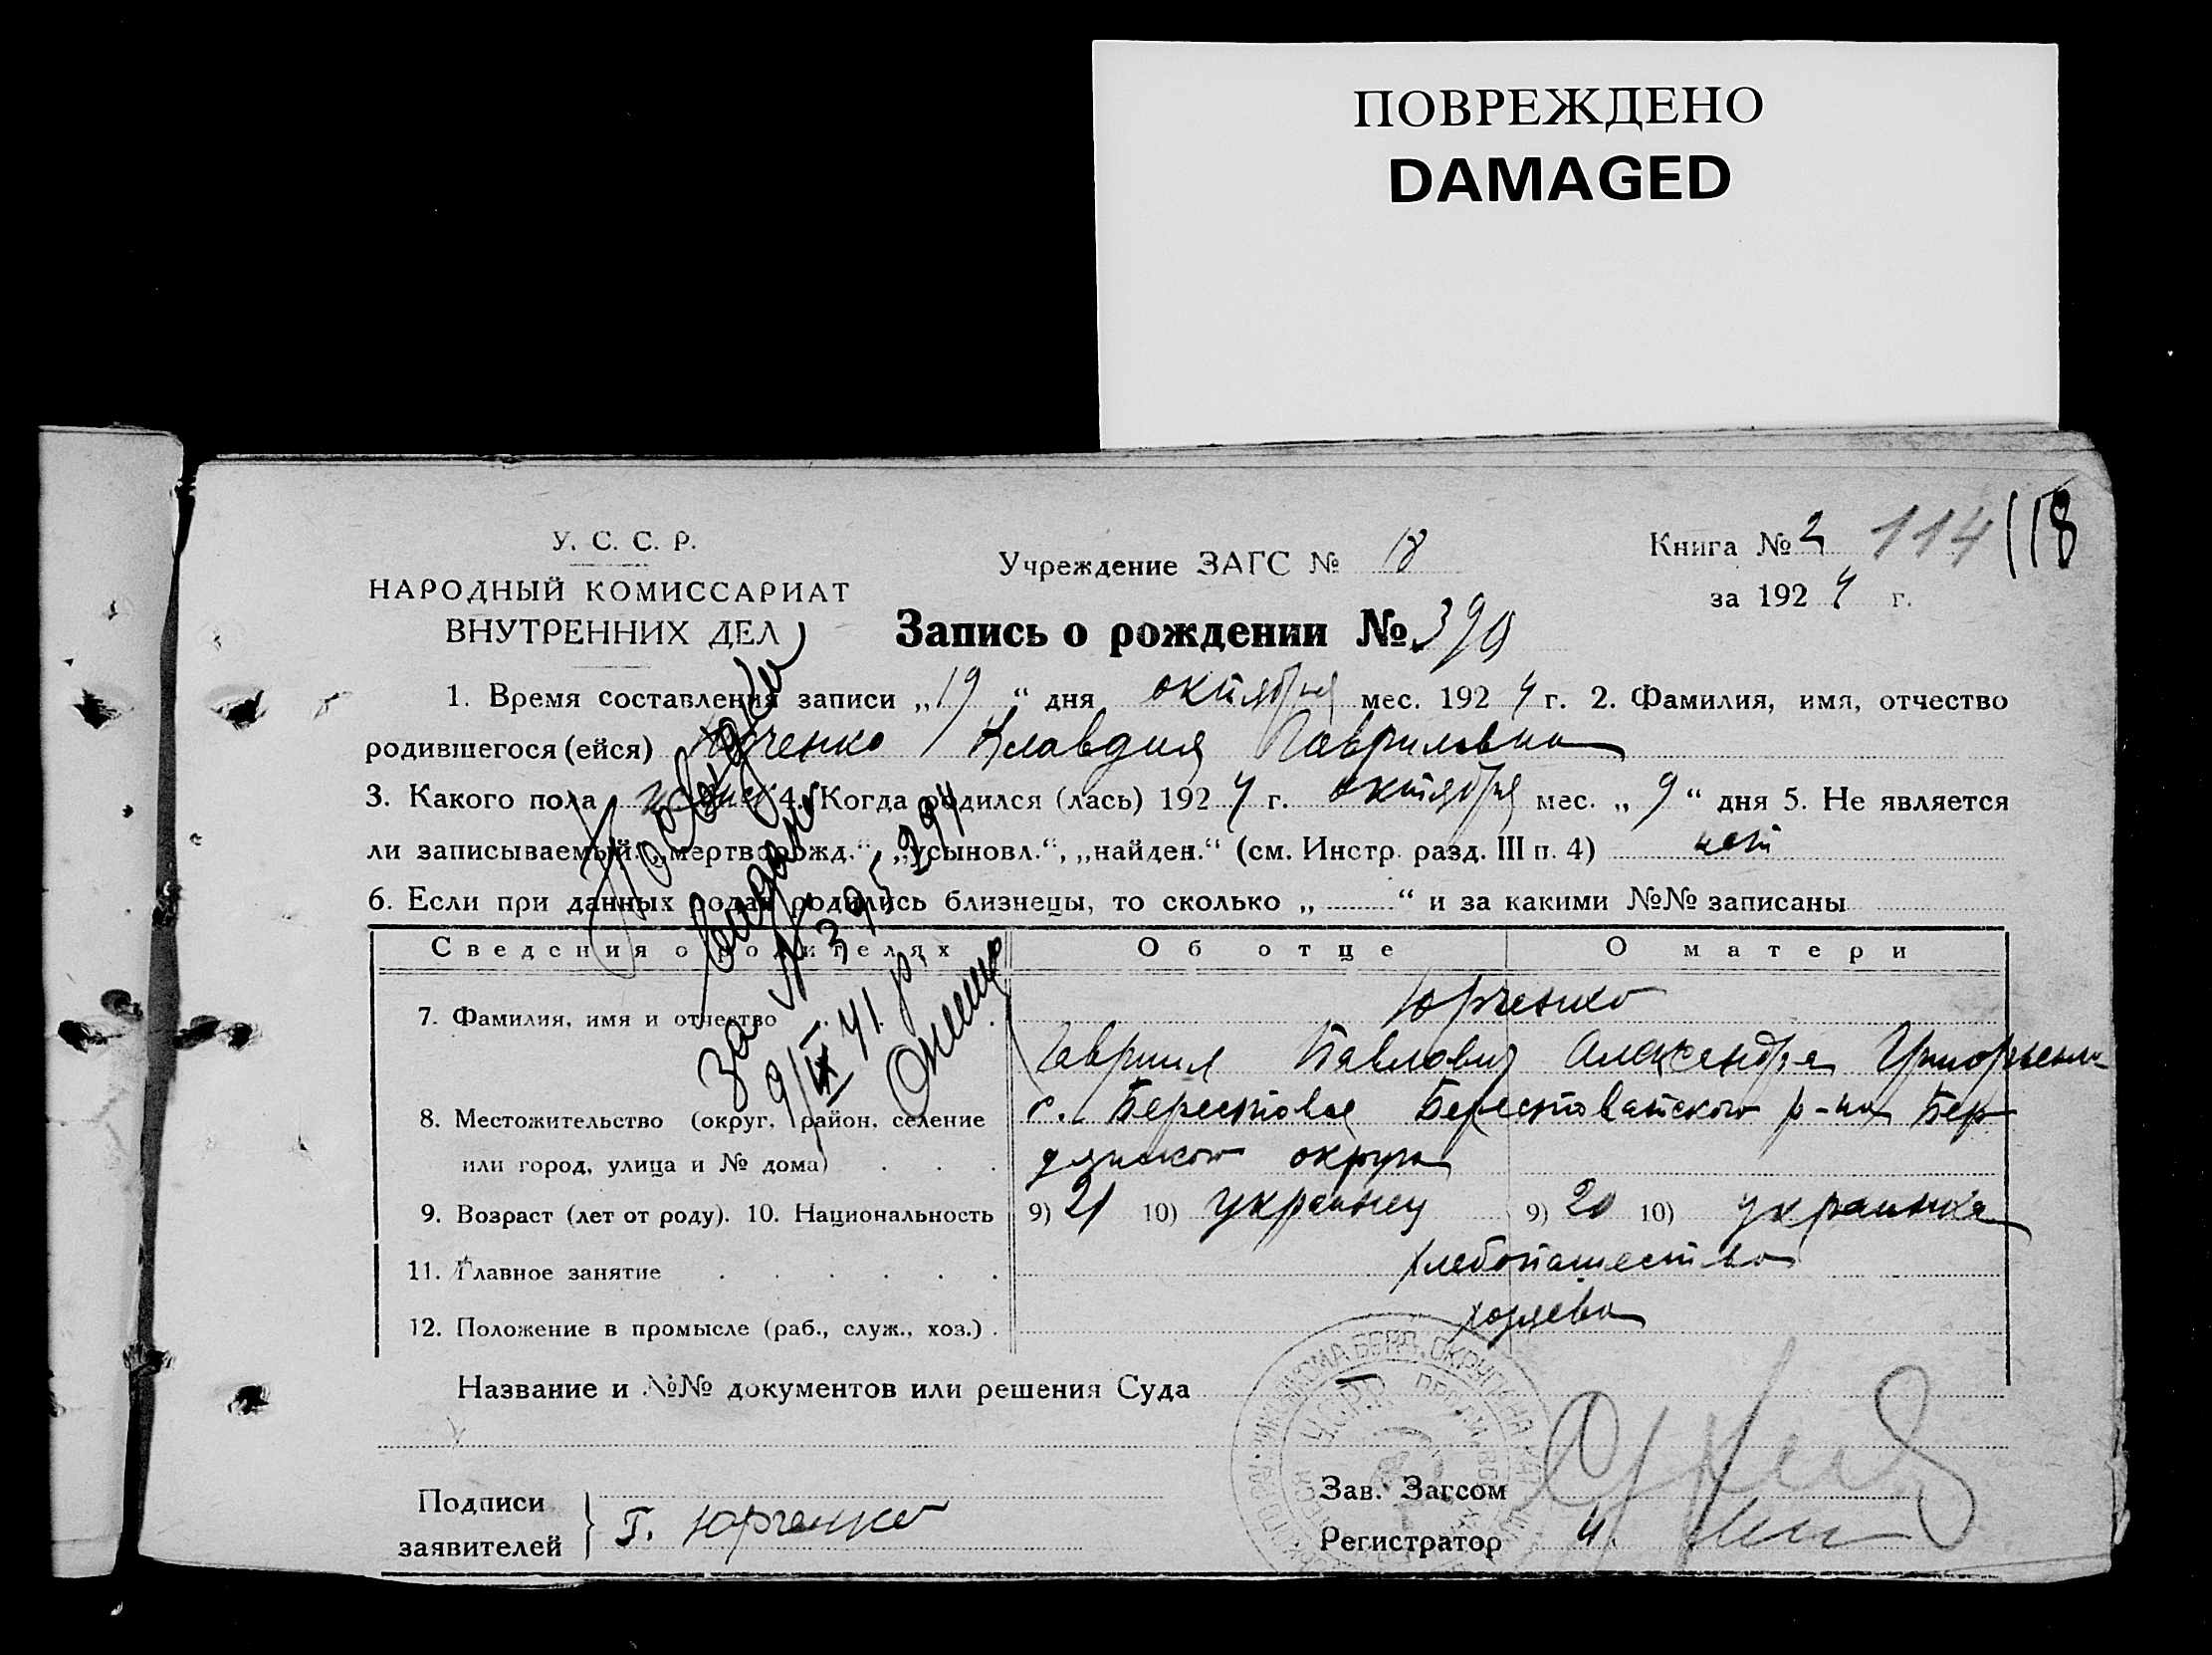 ПОВРЕЖДЕНО
DAMAGED
У. С. С. Р.
НАРОДНЫЙ КОМИССАРИАТ
ВНУТРЕННИХ ДЕЛ
Учреждение ЗАГС № 18
Книга № 2 114 118
за 1924 г.
Запись о рождении №
1. Время составления записи „19“ дня октября мес. 1924 г. 2. Фамилия, имя, отчество
родившегося (ейся) Юрченко Клавдия Гавриловна
3. Какого пола женск 4. Когда родился (лась) 1924 г. октября мес. „9“ дня 5. Не является
ли записываемый: „мертворожд.“, „усыновл.“, „найден.“ (см. Инстр. разд. III п. 4) нет
6. Если при данных родах родились близнецы, то сколько „ “ и за какими №№ записаны
за № 395294
9/IX 41 р.
Сведения о родителях Об отце О матери
7. Фамилия, имя и отчество Юрченко
Гавриил Павлович Александра Григорьевна
8. Местожительство (округ, район, селение с. Берестовое Берестоватского р-на Бер
или город, улица и № дома) дянского округа
9. Возраст (лет от роду). 10. Национальность 9) 21 10) украинец 9) 20 10) украинка
11. Главное занятие хлебопашество
12. Положение в промысле (раб., служ., хоз.) хозяева
Название и №№ документов или решения Суда
У.С.Р.Р.
Подписи
заявителей } Г. Юрченко
Зав. Загсом
Регистратор